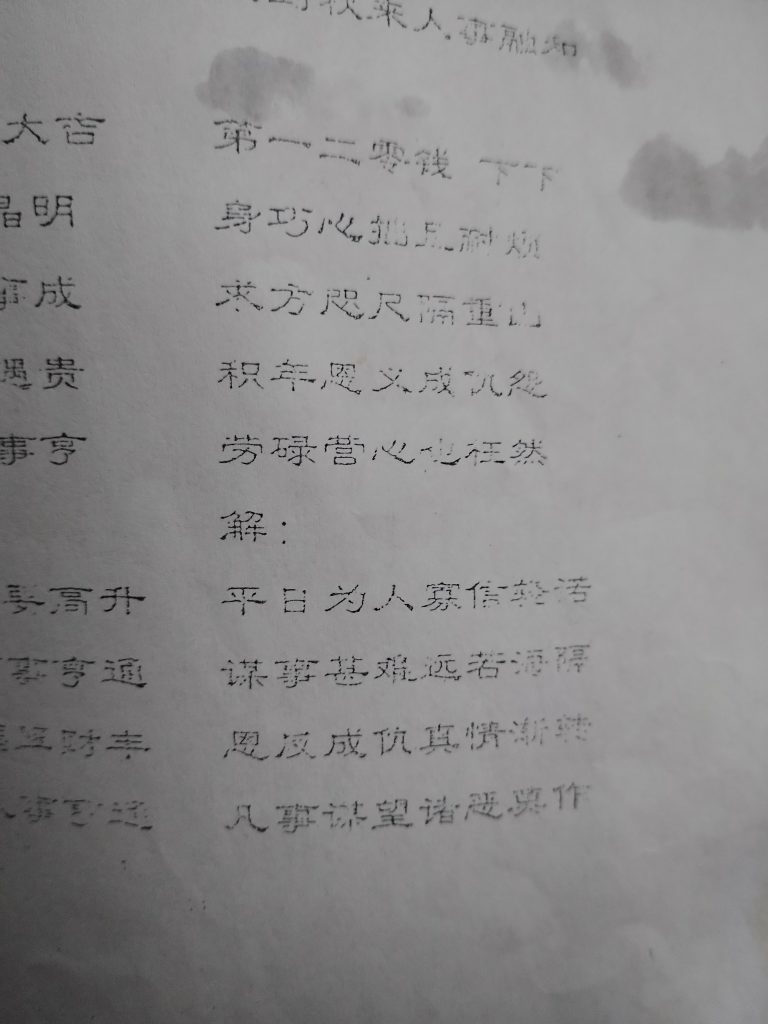 秋来人事融和
大吉
第一二零钱 下下
晶明
身巧心拙且耐烦
事成
求方咫尺隔重山
遇贵
积年恩义成仇怨
事亨
劳碌营心也枉然
解：
要高升
平日为人寡信轻诺
事亨通
谋事甚难远若海隔
财丰
恩反成仇真情渐转
事亨通
凡事谋望诸恶莫作